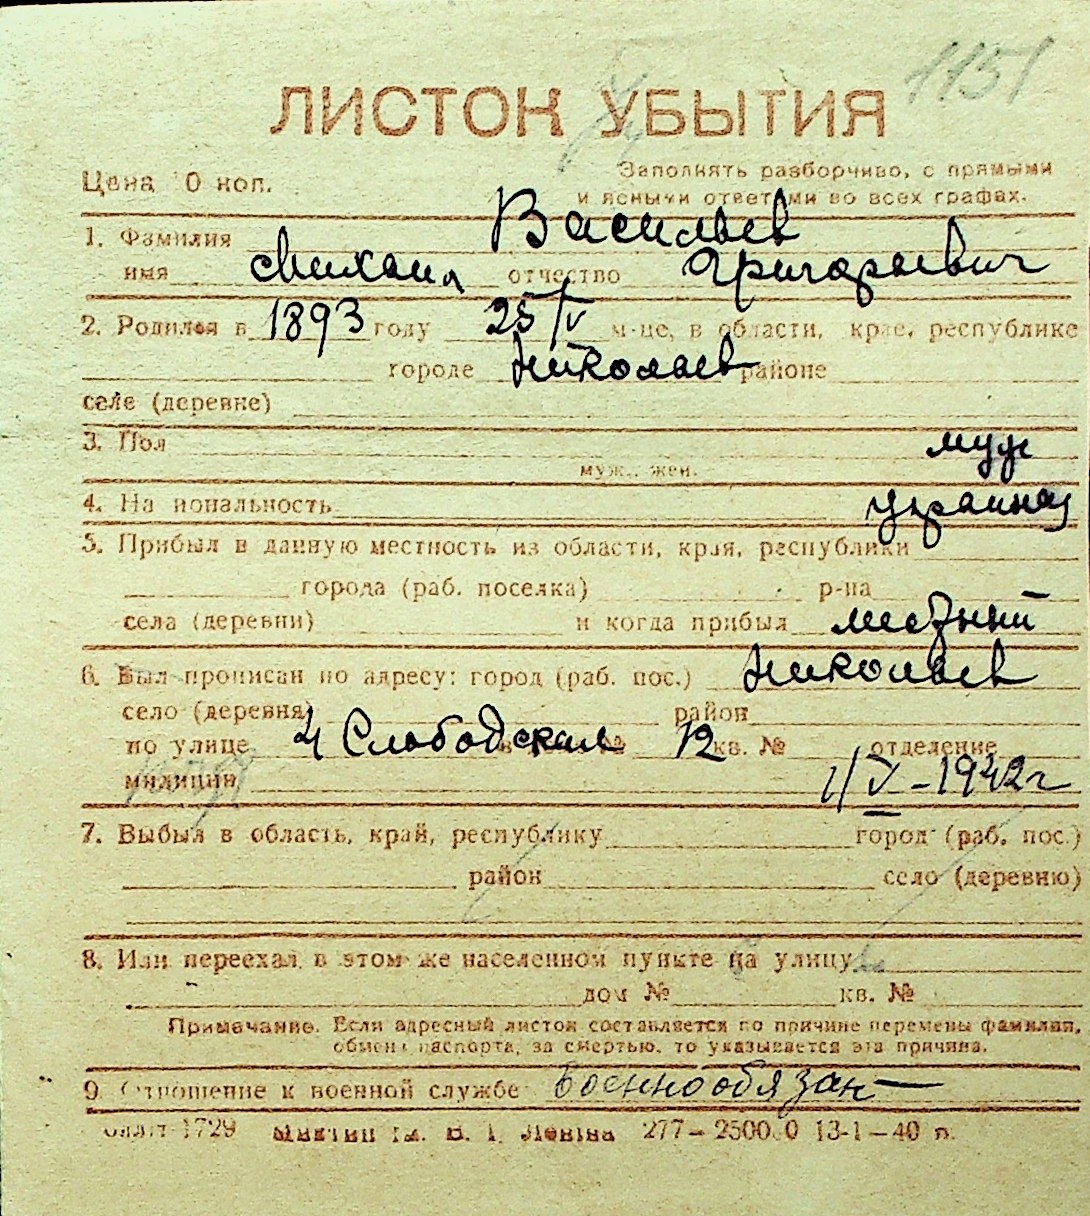 1151
ЛИСТОК УБЫТИЯ
Цена 0 коп.
Заполнять разборчиво, с прямыми
и ясными ответами во всех графах.
1. Фамилия Васильев
имя Михаил отчество Григорьевич
2. Родился в 1893 году 25/V м-це, в области, крае, республике
городе Николаев районе
селе (деревне)
3. Пол муж
муж., жен.
4. Национальность украинец
5. Прибыл в данную местность из области, края, республики
города (раб. поселка) р-на
села (деревни) и когда прибыл местный
6. Был прописан по адресу: город (раб. пос.) Николаев
село (деревня) район
по улице 4 Слободская № 12 кв. № отделение
милиции 1/V-1942г
7. Выбыл в область, край, республику город (раб. пос.)
район село (деревню)
8. Или переехал в этом же населенном пункте на улицу
дом № кв. №
Примечание. Если адресный листок составляется по причине перемены фамилии,
обмена паспорта, за смертью, то указывается эта причина.
9. Отношение к военной службе военнообязан
1729 277-2500 0 13-1-40 г.